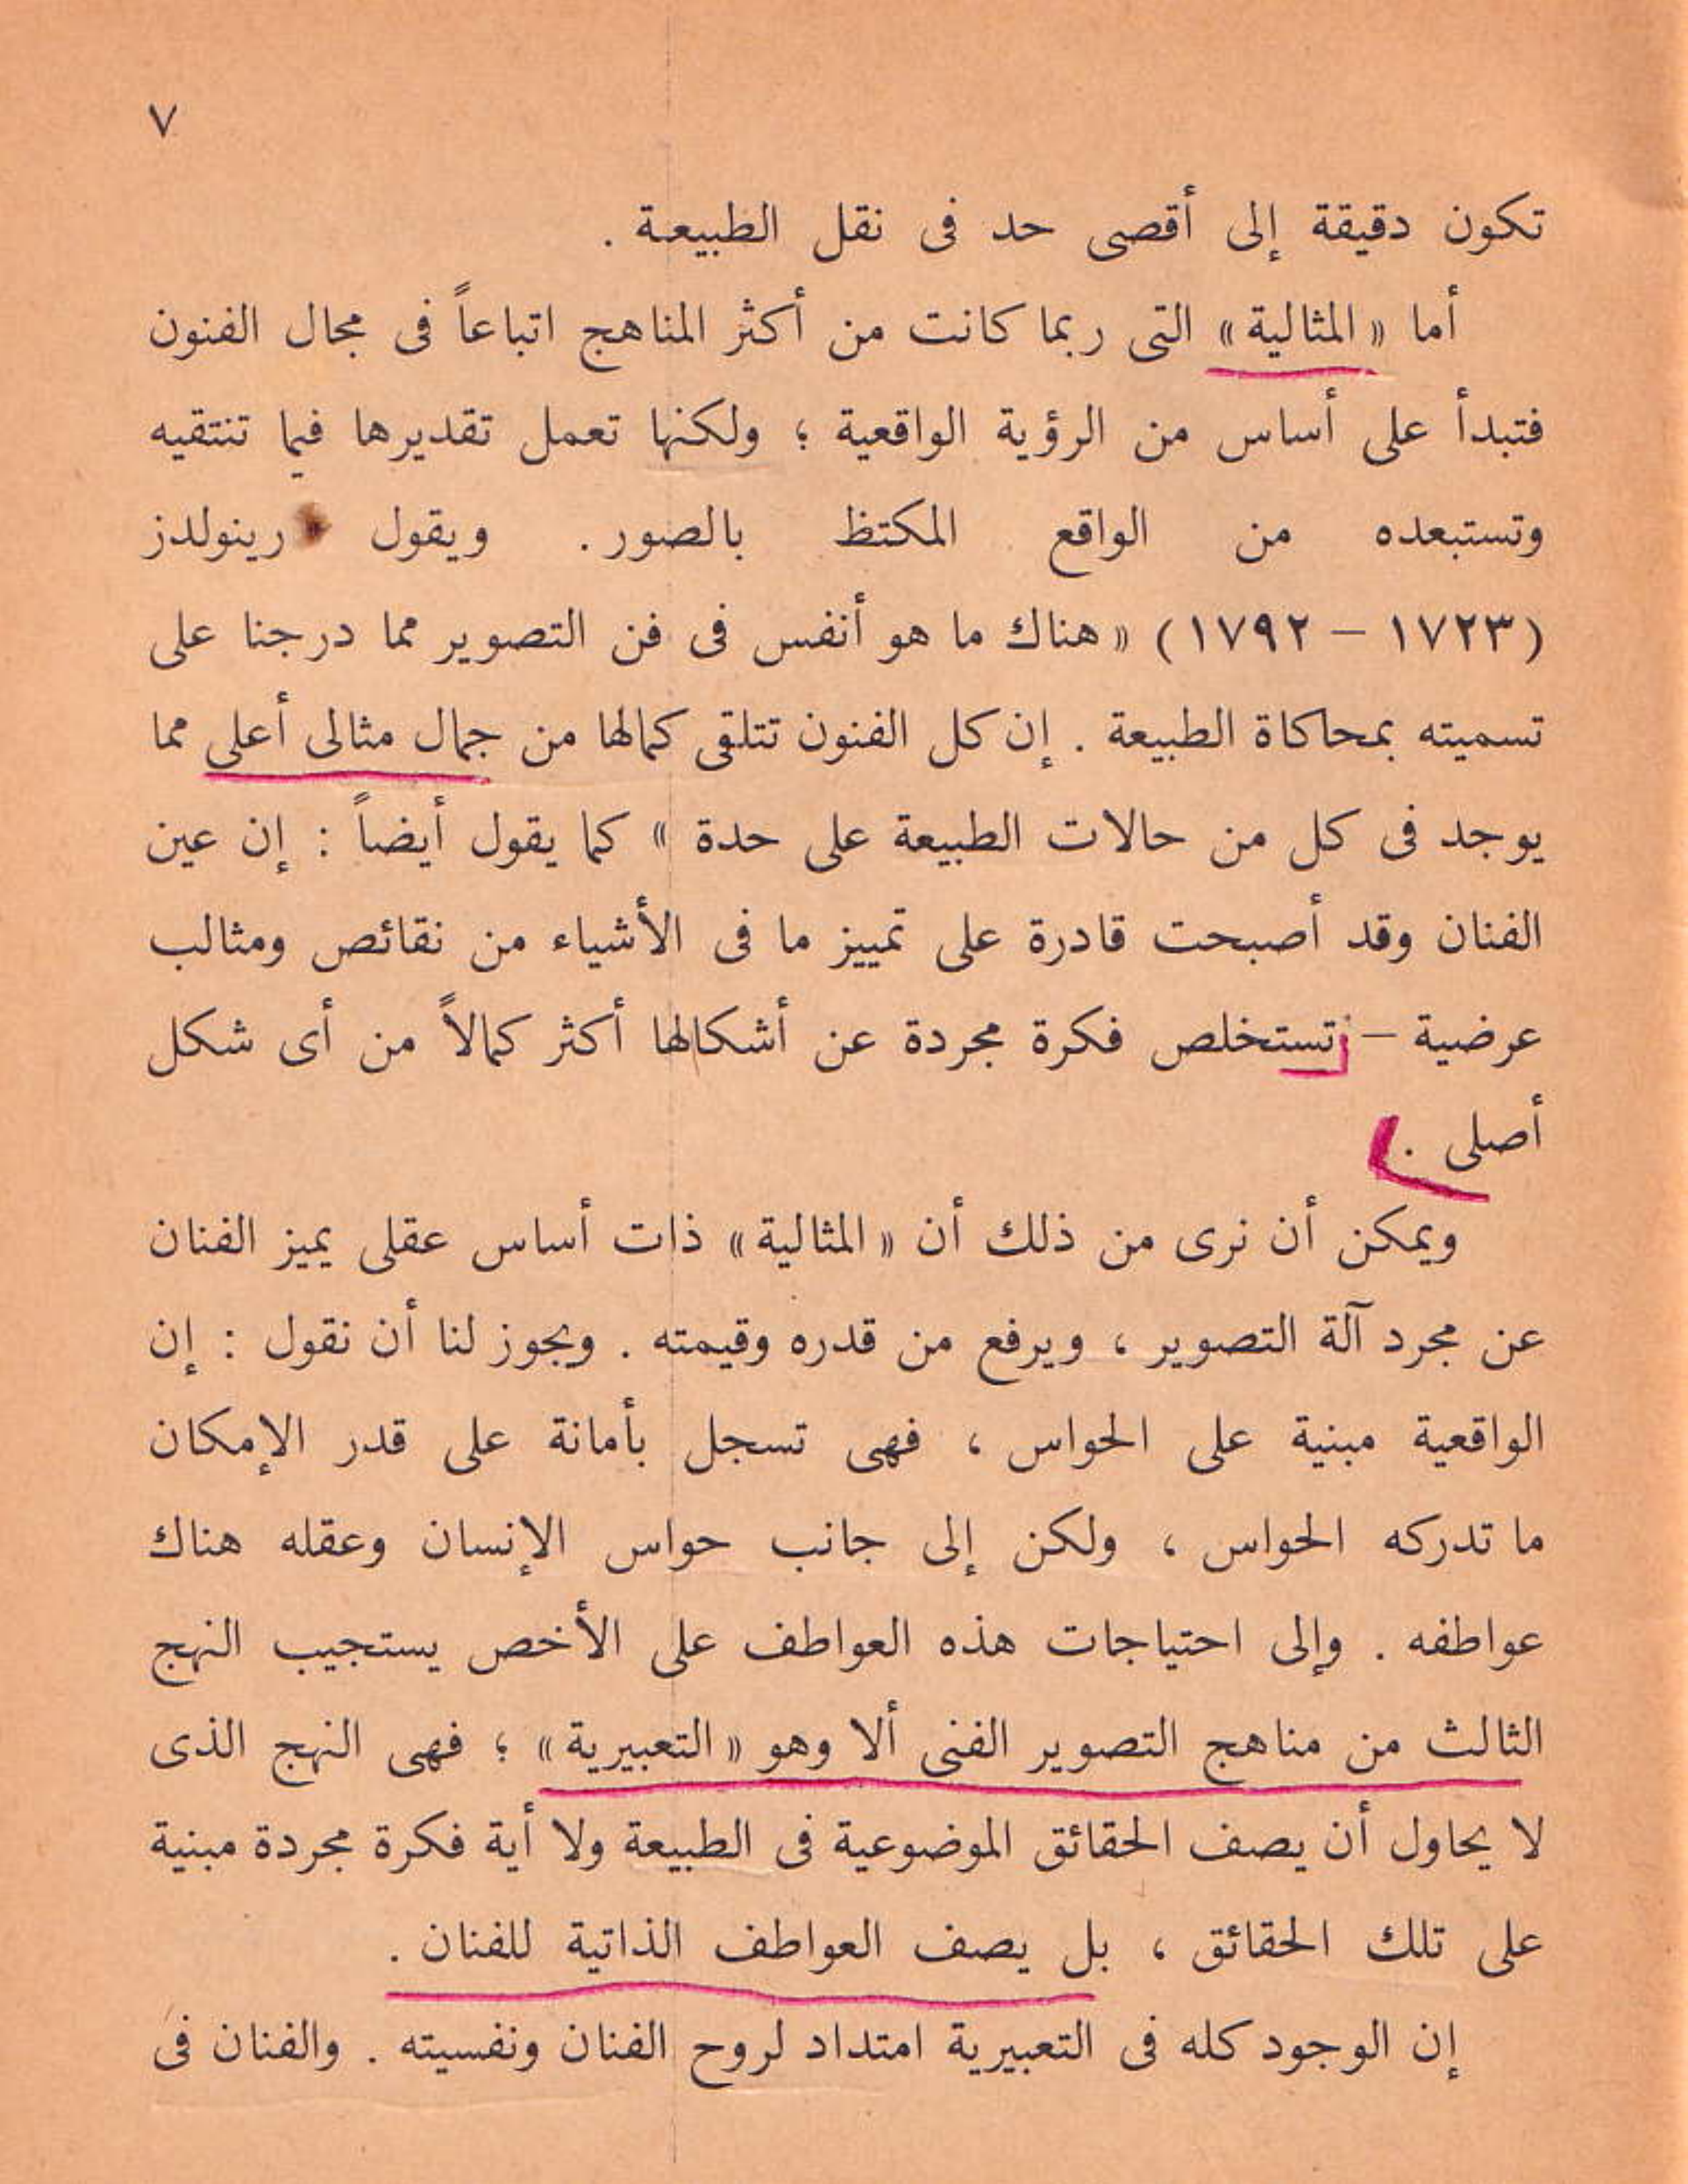 ٧
تكون دقيقة إلى أقصى حد فى نقل الطبيعة .
أما « المثالية » التى ربما كانت من أكثر المناهج اتباعاً فى مجال الفنون
فتبدأ على أساس من الرؤية الواقعية ؛ ولكنها تعمل تقديرها فيما تنتقيه
وتستبعده من الواقع المكتظ بالصور . ويقول رينولدز
(١٧٢٣ – ١٧٩٢) « هناك ما هو أنفس فى فن التصوير مما درجنا على
تسميته بمحاكاة الطبيعة . إن كل الفنون تتلقى كمالها من جمال مثالى أعلى مما
يوجد فى كل من حالات الطبيعة على حدة » كما يقول أيضاً : إن عين
الفنان وقد أصبحت قادرة على تمييز ما فى الأشياء من نقائص ومثالب
عرضية – تستخلص فكرة مجردة عن أشكالها أكثر كمالاً من أى شكل
أصلى .
ويمكن أن نرى من ذلك أن « المثالية » ذات أساس عقلى يميز الفنان
عن مجرد آلة التصوير ، ويرفع من قدره وقيمته . ويجوز لنا أن نقول : إن
الواقعية مبنية على الحواس ، فهى تسجل بأمانة على قدر الإمكان
ما تدركه الحواس ، ولكن إلى جانب حواس الإنسان وعقله هناك
عواطفه . وإلى احتياجات هذه العواطف على الأخص يستجيب النهج
الثالث من مناهج التصوير الفنى ألا وهو « التعبيرية » ؛ فهى النهج الذى
لا يحاول أن يصف الحقائق الموضوعية فى الطبيعة ولا أية فكرة مجردة مبنية
على تلك الحقائق ، بل يصف العواطف الذاتية للفنان .
إن الوجود كله فى التعبيرية امتداد لروح الفنان ونفسيته . والفنان فى